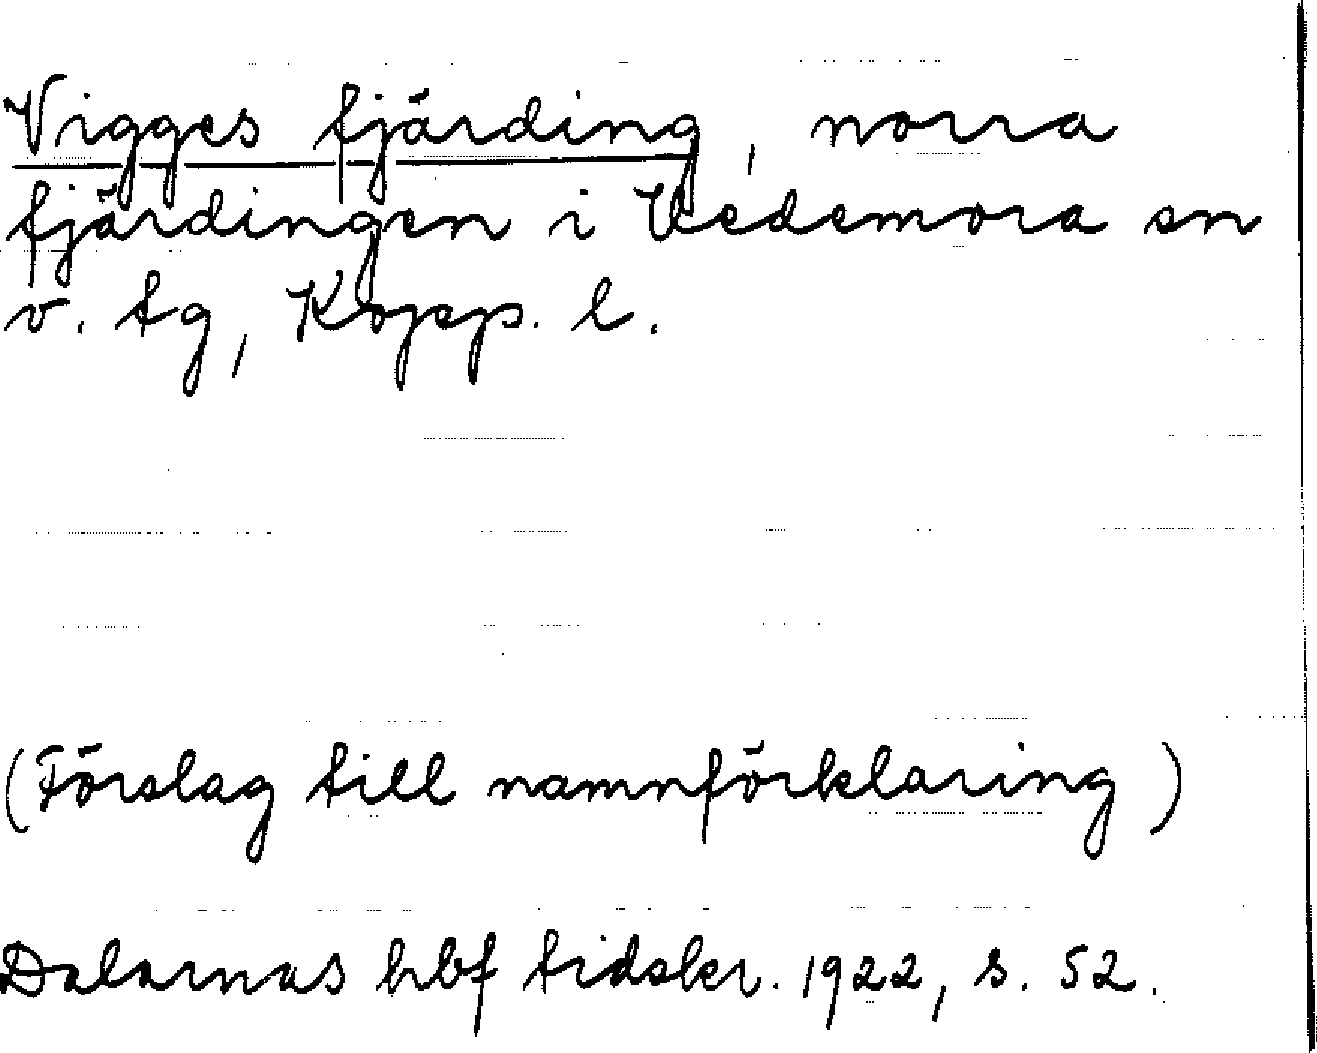 Vigges fjärding, norra
fjärdingen i Hedemora sn
v. tg, Kopp. l.
(Förslag till namnförklaring)
Dalarnas hbf tidskr. 1922, s. 52.